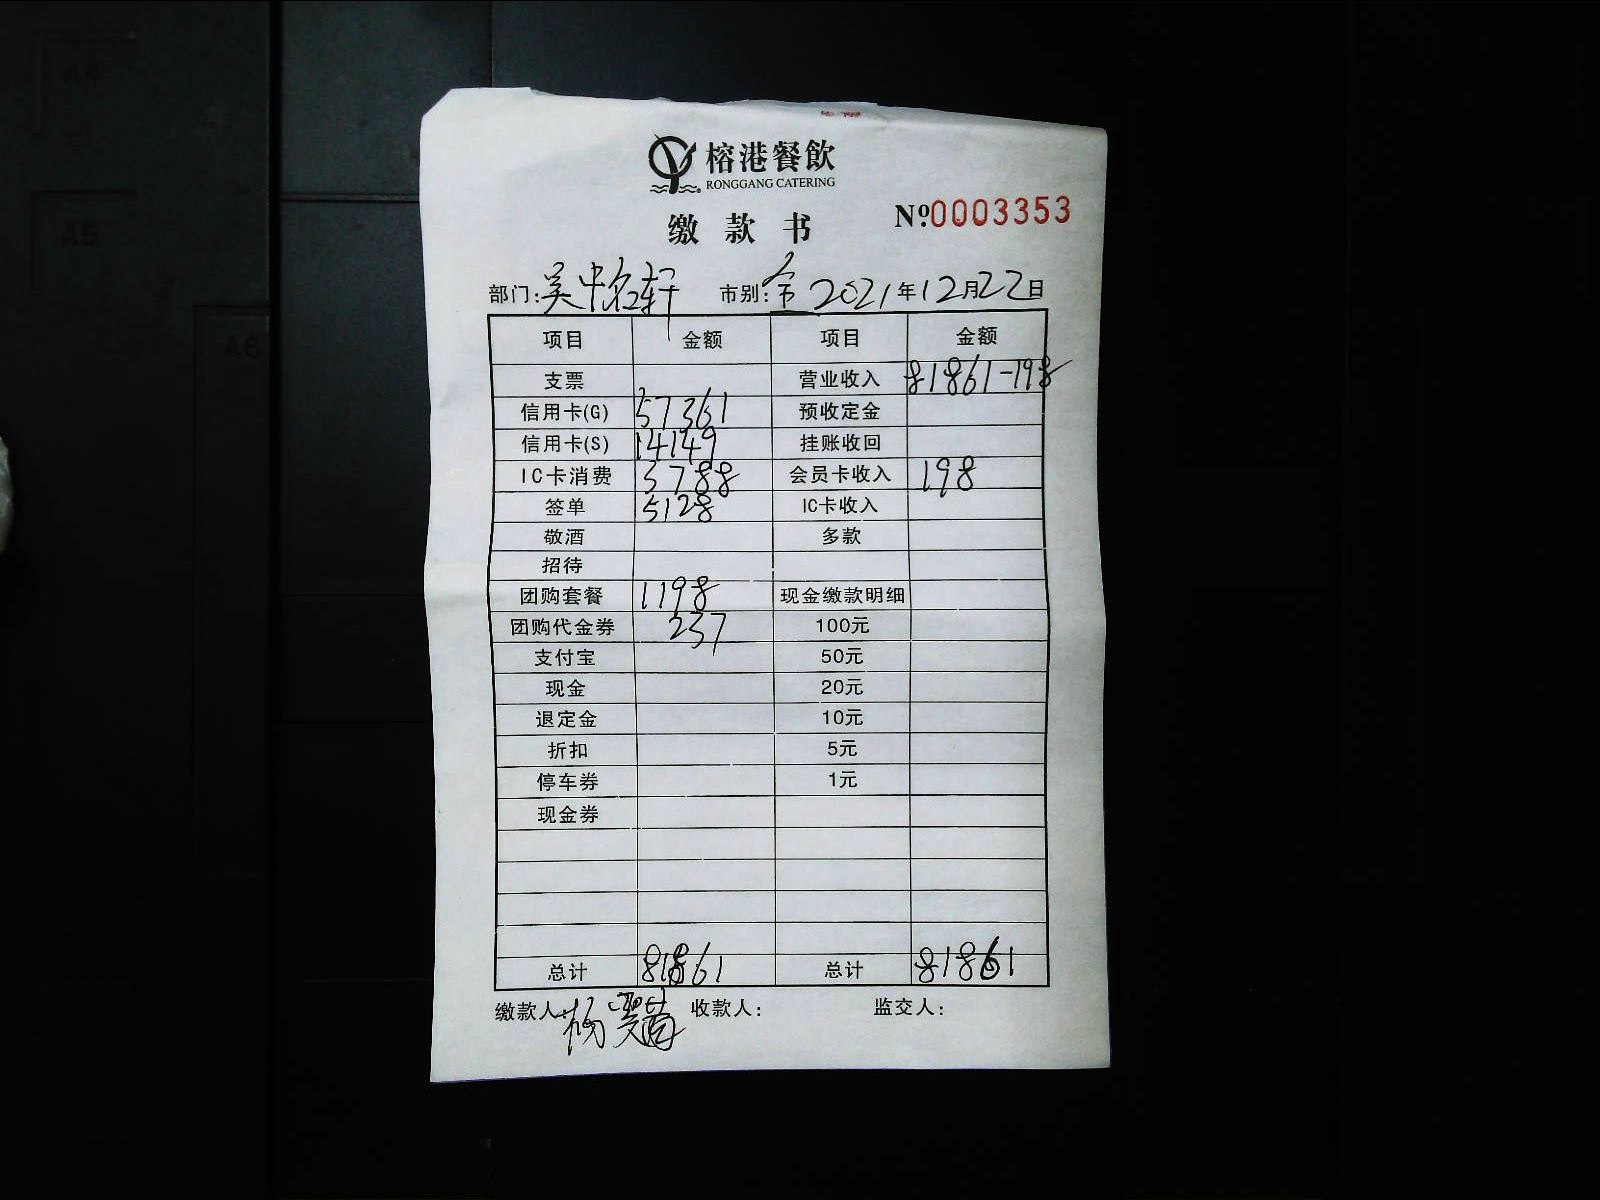 榕港餐飲
RONGGANG CATERING
缴款书
№:0003353
部门:吴中名轩 市别:全市 2021年12月22日
项目 金额 项目 金额
支票 营业收入 81861-198
信用卡(G) 57361 预收定金
信用卡(S) 14149 挂账收回
IC卡消费 3788 会员卡收入 198
签单 5128 IC卡收入
敬酒 多款
招待
团购套餐 1198 现金缴款明细
团购代金券 237 100元
支付宝 50元
现金 20元
退定金 10元
折扣 5元
停车券 1元
现金券
总计 81861 总计 81861
缴款人:杨 收款人: 监交人:
A4
A5
A6